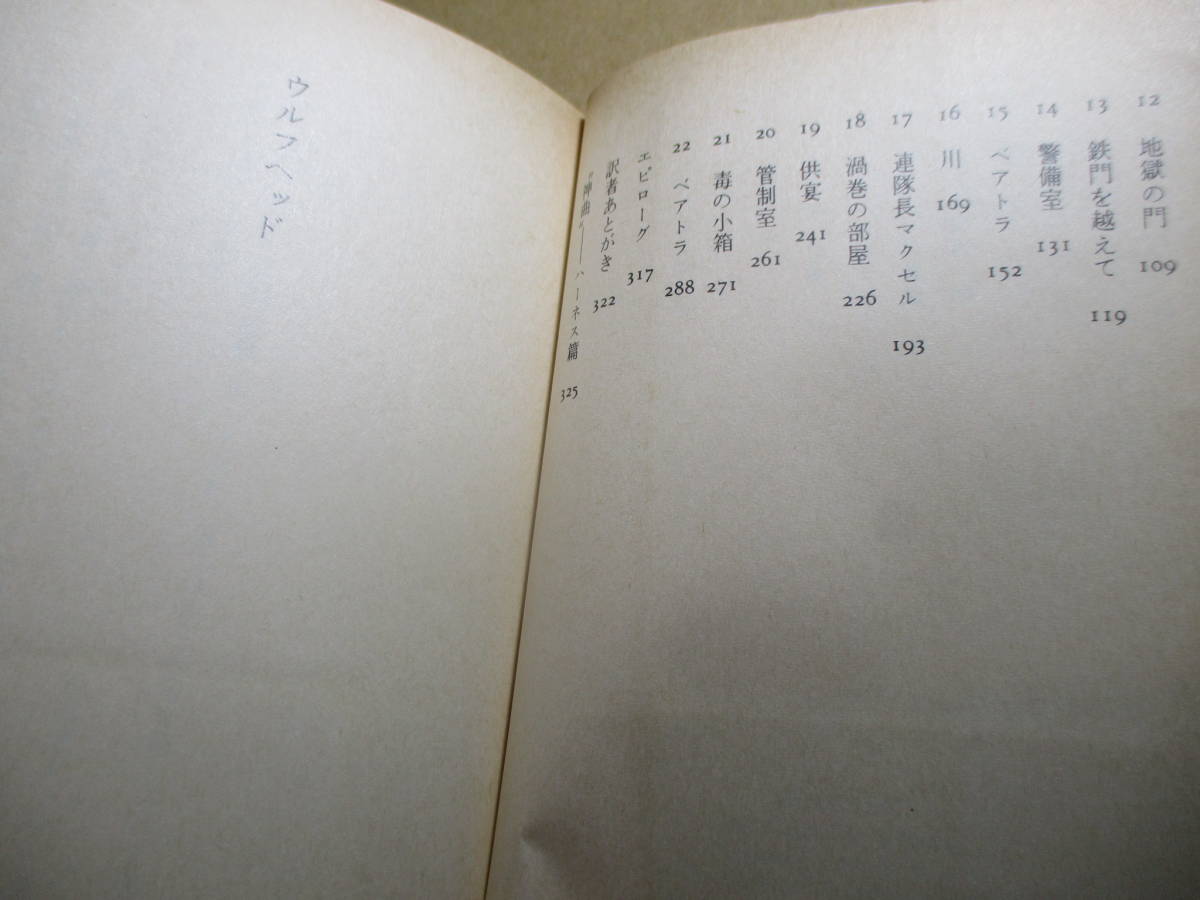 12 地獄の門 109
13 鉄門を越えて 119
14 警備室 131
15 ベアトラ 152
16 川 169
17 連隊長マクセル 193
18 渦巻の部屋 226
19 供宴 241
20 管制室 261
21 毒の小箱 271
22 ベアトラ 288
エピローグ 317
訳者あとがき 322
〝神曲〟――ハーネス篇 325
ウルフヘッド